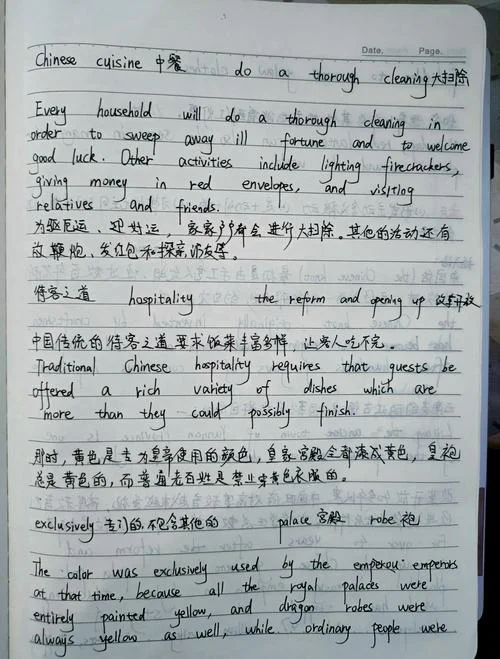 Date.    Page.
Chinese cuisine 中餐    do a thorough cleaning大扫除
Every household will do a thorough cleaning in
order to sweep away ill fortune and to welcome
good luck. Other activities include lighting firecrackers,
giving money in red envelopes, and visiting
relatives and friends.
为驱厄运、迎好运,家家户户都会进行大扫除。其他的活动还有
放鞭炮、发红包和探亲访友等。
待客之道    hospitality    the reform and opening up 改革开放
中国传统的待客之道要求饭菜丰富多样,让客人吃不完。
Traditional Chinese hospitality requires that guests be
offered a rich variety of dishes which are
more than they could possibly finish.
那时,黄色是专为皇帝使用的颜色,皇家宫殿全都漆成黄色,皇袍
总是黄色的,而普通老百姓是禁止穿黄色衣服的。
exclusively 专门的不包含其他的    palace 宫殿    robe 袍
The color was exclusively used by the emperors
at that time, because all the royal palaces were
entirely painted yellow, and dragon robes were
always yellow as well, while ordinary people were